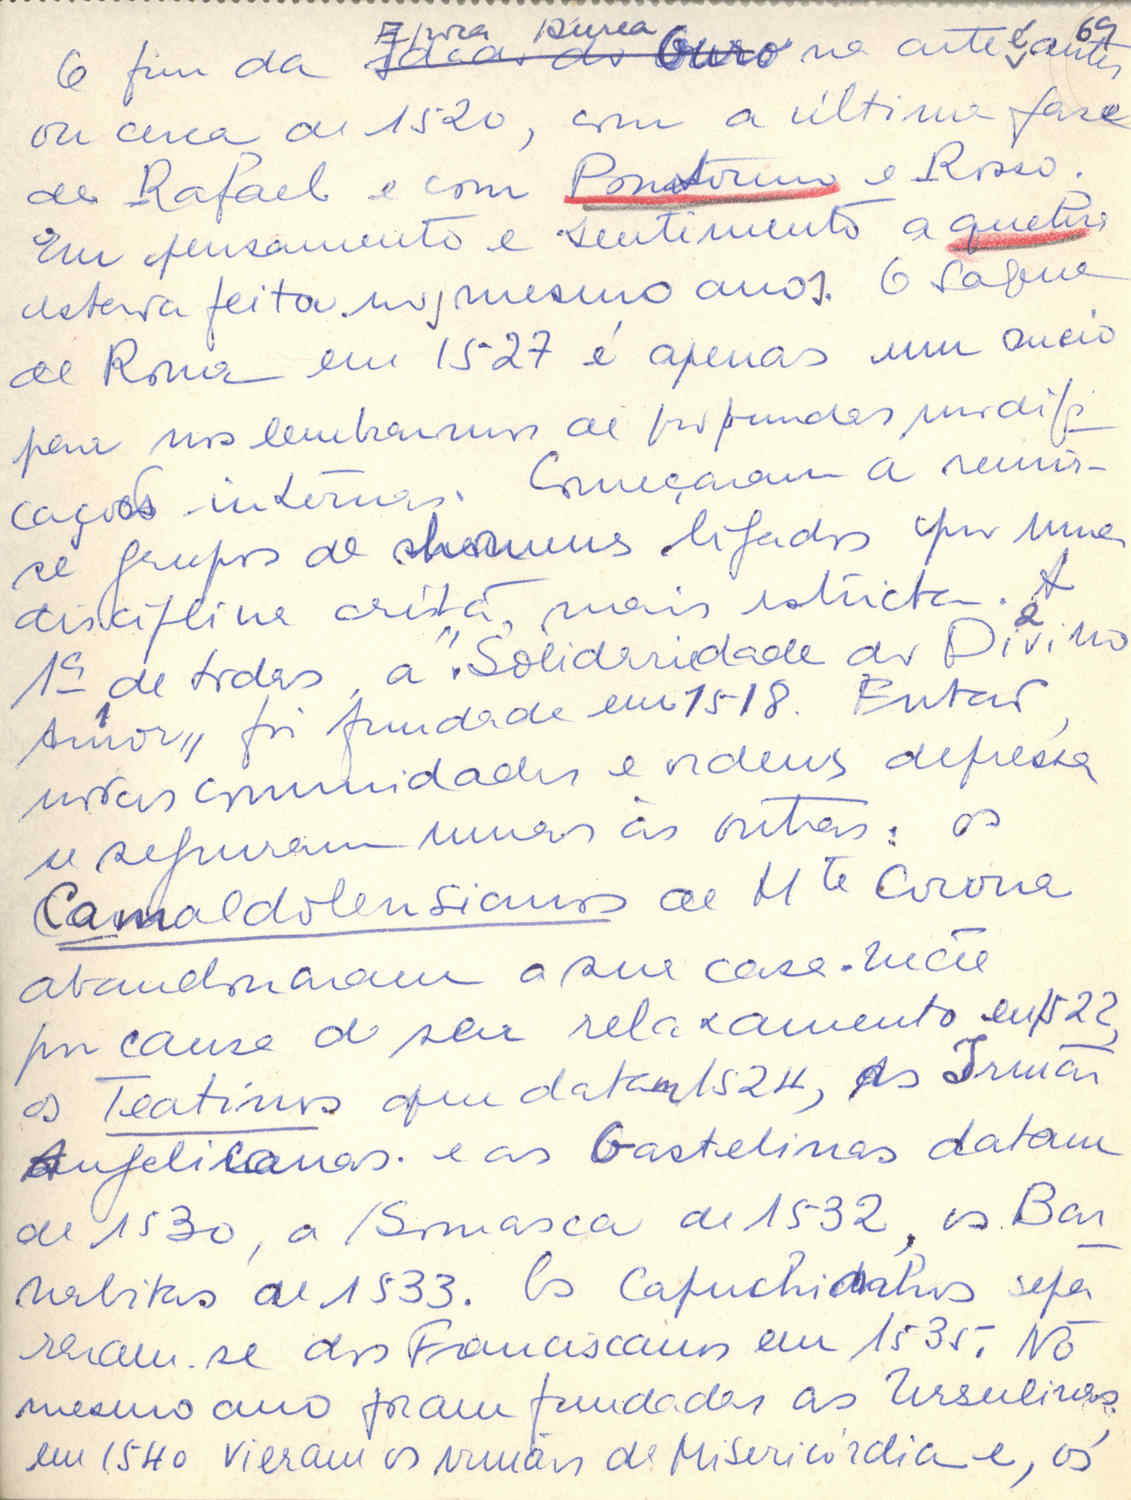 69
Época Áurea
O fim da Idade do Ouro na arte é, antes
ou cerca de 1520, com a última fase
de Rafael e com Pontormo e Rosso.
Em pensamento e sentimento a quebra
estava feita nos mesmo anos. O saque
de Roma em 1527 é apenas um meio
para nos lembrarmos de profundas modifi
cações internas. Começaram a reunir-
se grupos de homens ligados por uma
disciplina cristã, mais estricta. A
1ª de todas, a "Solidariedade do Divino
Amor" foi fundada em 1518. Entao,
novas comunidades e ordens depressa
se seguiram umas às outras: os
Camaldolensianos de Mte Corona
abandonaram a sua casa-mãe
por causa do seu relaxamento em 1522,
os Teatinos que datam 1524, As Irmãs
Angelicanas e as Gastelinas datam
de 1530, a Somasca de 1532, os Bar
nabitas de 1533. Os Capuchinhos sepa
raram-se dos Franciscanos em 1535. No
mesmo ano foram fundadas as Ursulinas;
em 1540 vieram os irmãos de Misericórdia e, os